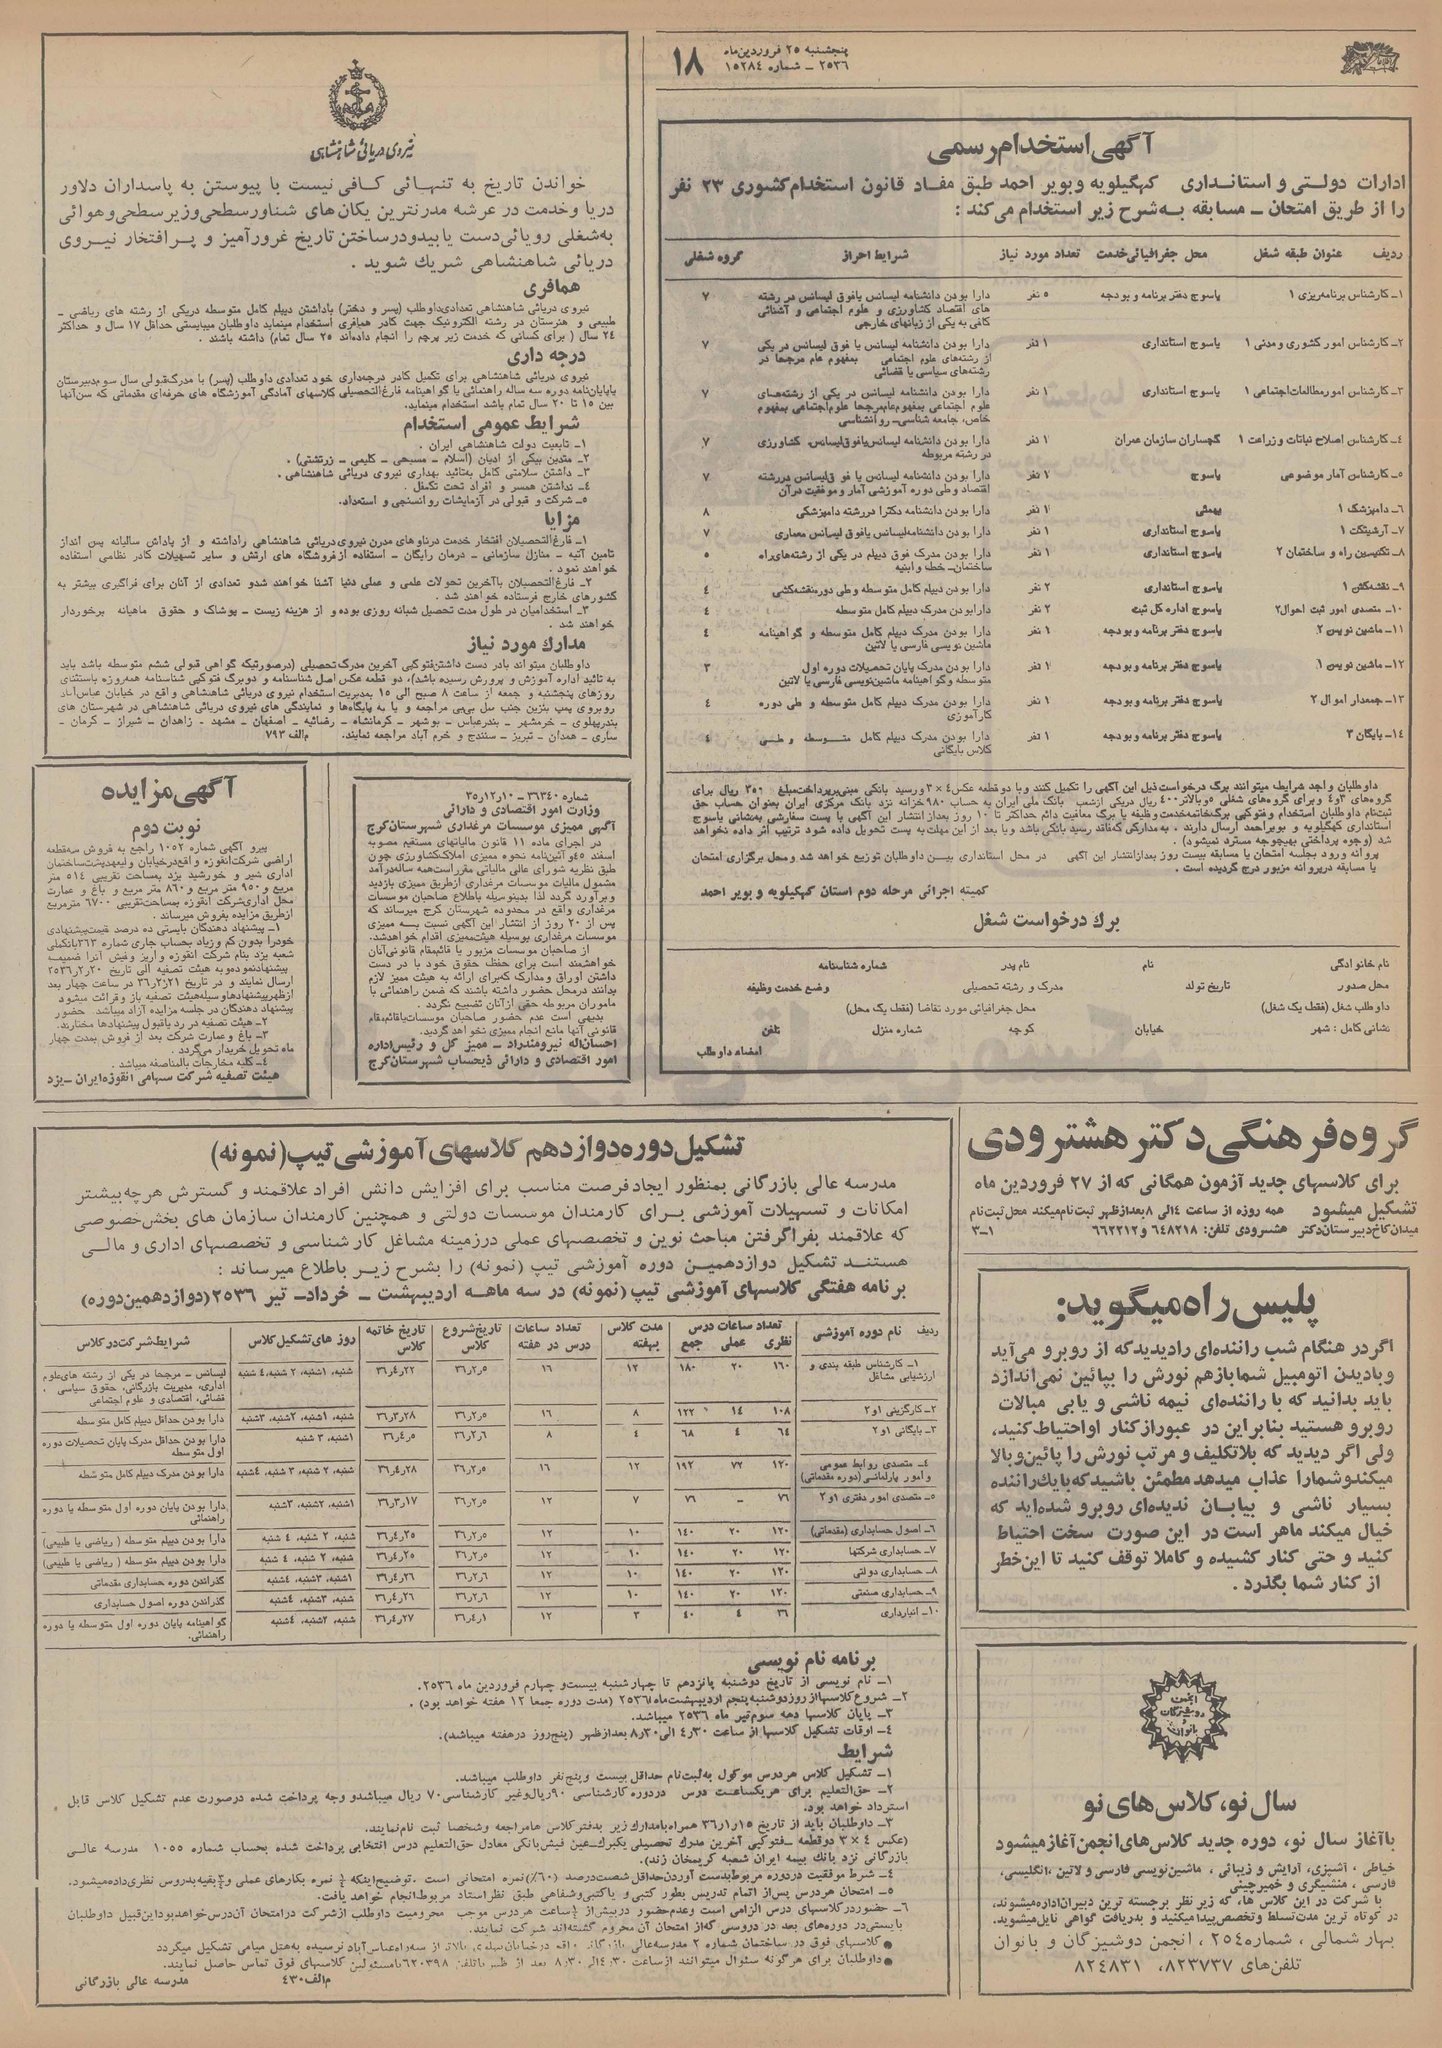 پنجشنبه ۲۵ فروردین‌ماه
۲۵۳۶ ـ شماره ۱۵۲۸۴
۱۸
آگهی استخدام رسمی
ادارات دولتی و استانداری کهگیلویه و بویر احمد طبق مفاد قانون استخدام کشوری ۲۳ نفر
را از طریق امتحان ـ مسابقه به‌شرح زیر استخدام می‌کند :
ردیف عنوان طبقه شغل محل جغرافیائی خدمت تعداد مورد نیاز شرایط احراز گروه شغلی
۱ـ کارشناس برنامه‌ریزی ۱ یاسوج دفتر برنامه و بودجه ۵ نفر دارا بودن دانشنامه لیسانس یا فوق لیسانس در رشته ۷
های اقتصاد کشاورزی و علوم اجتماعی و آشنائی
کافی به یکی از زبانهای خارجی
۲ـ کارشناس امور کشوری و مدنی ۱ یاسوج استانداری ۱ نفر دارا بودن دانشنامه لیسانس یا فوق لیسانس در یکی ۷
از رشته‌های علوم اجتماعی بمفهوم عام مرجحا در
رشته‌های سیاسی یا قضائی
۳ـ کارشناس امور مطالعات اجتماعی ۱ یاسوج استانداری ۱ نفر دارا بودن دانشنامه لیسانس در یکی از رشته‌های ۷
علوم اجتماعی بمفهوم عام مرجحا علوم اجتماعی بمفهوم
خاص، جامعه شناسی ـ روانشناسی
۴ـ کارشناس اصلاح نباتات و زراعت ۱ گچساران سازمان عمران ۱ نفر دارا بودن دانشنامه لیسانس یا فوق لیسانس کشاورزی ۷
در رشته مربوطه
۵ـ کارشناس آمار موضوعی یاسوج ۱ نفر دارا بودن دانشنامه لیسانس یا فوق لیسانس در رشته ۷
اقتصاد و طی دوره آموزشی آمار و موفقیت در آن
۶ـ دامپزشک ۱ بهمئی ۱ نفر دارا بودن دانشنامه دکترا در رشته دامپزشکی ۸
۷ـ آرشیتکت ۱ یاسوج استانداری ۱ نفر دارا بودن دانشنامه لیسانس یا فوق لیسانس معماری ۷
۸ـ تکنیسین راه و ساختمان ۲ یاسوج استانداری ۱ نفر دارا بودن مدرک فوق دیپلم در یکی از رشته‌های راه ۵
ساختمان ـ خط و ابنیه
۹ـ نقشه‌کش ۱ یاسوج استانداری ۲ نفر دارا بودن دیپلم کامل متوسطه و طی دوره نقشه‌کشی ۴
۱۰ـ متصدی امور ثبت احوال ۲ یاسوج اداره کل ثبت ۲ نفر دارا بودن مدرک دیپلم کامل متوسطه ۴
۱۱ـ ماشین نویس ۲ یاسوج دفتر برنامه و بودجه ۱ نفر دارا بودن مدرک دیپلم کامل متوسطه و گواهینامه ۴
ماشین نویسی فارسی یا لاتین
۱۲ـ ماشین نویس ۱ یاسوج دفتر برنامه و بودجه ۱ نفر دارا بودن مدرک پایان تحصیلات دوره اول ۳
متوسطه و گواهینامه ماشین‌نویسی فارسی یا لاتین
۱۳ـ جمعدار اموال ۲ یاسوج دفتر برنامه و بودجه ۱ نفر دارا بودن مدرک دیپلم کامل متوسطه و طی دوره ۴
کارآموزی
۱۴ـ بایگان ۳ یاسوج دفتر برنامه و بودجه ۱ نفر دارا بودن مدرک دیپلم کامل متوسطه و طی ۴
کلاس بایگانی
داوطلبان واجد شرایط میتوانند برگ درخواست ذیل این آگهی را تکمیل کنند و با دو قطعه عکس ۴×۳ و رسید بانکی مبنی بر پرداخت مبلغ ۲۵۰ ریال برای
گروه‌های ۳ و ۴ و برای گروه‌های شغلی ۵ و بالاتر ۴۰۰ ریال در یکی از شعب بانک ملی ایران به حساب ۹۸۰ خزانه نزد بانک مرکزی ایران بعنوان حق
ثبت‌نام داوطلبان استخدام و فتوکپی برگ خاتمه خدمت وظیفه یا برگ معافیت دائم حداکثر تا ۱۰ روز بعد از انتشار این آگهی با پست سفارشی به‌نشانی یاسوج
استانداری کهگیلویه و بویراحمد ارسال دارند ، به‌مدارکی که فاقد رسید بانکی باشد و یا بعد از این مهلت به پست تحویل داده شود ترتیب اثر داده نخواهد
شد (وجوه پرداختی بهیچوجه مسترد نمیشود) .
پروانه ورود بجلسه امتحان یا مسابقه بیست روز بعد از انتشار این آگهی در محل استانداری بین داوطلبان توزیع خواهد شد و محل برگزاری امتحان
یا مسابقه در پروانه مزبور درج گردیده است .
کمیته اجرائی مرحله دوم استان کهگیلویه و بویر احمد
برگ درخواست شغل
نام خانوادگی نام نام پدر شماره شناسنامه
محل صدور تاریخ تولد مدرک و رشته تحصیلی وضع خدمت وظیفه
داوطلب شغل (فقط یک شغل) محل جغرافیائی مورد تقاضا (فقط یک محل)
نشانی کامل : شهر خیابان کوچه شماره منزل تلفن
امضاء داوطلب
نیروی دریائی شاهنشاهی
خواندن تاریخ به تنهائی کافی نیست با پیوستن به پاسداران دلاور
دریا و خدمت در عرشه مدرنترین یکان‌های شناور سطحی و زیر سطحی و هوائی
به‌شغلی رویائی دست یابید و در ساختن تاریخ غرورآمیز و پرافتخار نیروی
دریائی شاهنشاهی شریک شوید .
همافری
نیروی دریائی شاهنشاهی تعدادی داوطلب (پسر و دختر) با داشتن دیپلم کامل متوسطه در یکی از رشته های ریاضی ـ
طبیعی و هنرستان در رشته الکترونیک جهت کادر همافری استخدام مینماید داوطلبان میبایستی حداقل ۱۷ سال و حداکثر
۲۴ سال ( برای کسانی که خدمت زیر پرچم را انجام داده‌اند ۲۵ سال تمام) داشته باشند .
درجه داری
نیروی دریائی شاهنشاهی برای تکمیل کادر درجه‌داری خود تعدادی داوطلب (پسر) با مدرک قبولی سال سوم دبیرستان
یا پایان‌نامه دوره سه ساله راهنمائی یا گواهینامه فارغ‌التحصیلی کلاسهای آمادگی آموزشگاه های حرفه‌ای مقدماتی که سن آنها
بین ۱۵ تا ۲۰ سال تمام باشد استخدام مینماید.
شرایط عمومی استخدام
۱ـ تابعیت دولت شاهنشاهی ایران .
۲ـ متدین بیکی از ادیان (اسلام ـ مسیحی ـ کلیمی ـ زرتشتی) .
۳ـ داشتن سلامتی کامل به‌تائید بهداری نیروی دریائی شاهنشاهی .
۴ـ نداشتن همسر و افراد تحت تکفل .
۵ـ شرکت و قبولی در آزمایشات روانسنجی و استعداد.
مزایا
۱ـ فارغ‌التحصیلان افتخار خدمت در ناوهای مدرن نیروی دریائی شاهنشاهی را داشته و از پاداش سالیانه پس انداز
تامین آتیه ـ منازل سازمانی ـ درمان رایگان ـ استفاده از فروشگاه های ارتش و سایر تسهیلات کادر نظامی استفاده
خواهند نمود .
۲ـ فارغ‌التحصیلان با آخرین تحولات علمی و عملی دنیا آشنا خواهند شد و تعدادی از آنان برای فراگیری بیشتر به
کشورهای خارج فرستاده خواهند شد .
۳ـ استخدامیان در طول مدت تحصیل شبانه روزی بوده و از هزینه زیست ـ پوشاک و حقوق ماهیانه برخوردار
خواهند شد .
مدارک مورد نیاز
داوطلبان میتوانند با در دست داشتن فتوکپی آخرین مدرک تحصیلی (در صورتیکه گواهی قبولی ششم متوسطه باشد باید
به تائید اداره آموزش و پرورش رسیده باشد)، دو قطعه عکس اصل شناسنامه و دو برگ فتوکپی شناسنامه همه‌روزه باستثنای
روزهای پنجشنبه و جمعه از ساعت ۸ صبح الی ۱۵ بمدیریت استخدام نیروی دریائی شاهنشاهی واقع در خیابان عباس‌آباد
روبروی پمپ بنزین جنب سل بی‌پی مراجعه و یا به پایگاه‌ها و نمایندگی های نیروی دریائی شاهنشاهی در شهرستان های
بندرپهلوی ـ خرمشهر ـ بندرعباس ـ بوشهر ـ کرمانشاه ـ رضائیه ـ اصفهان ـ مشهد ـ زاهدان ـ شیراز ـ کرمان ـ
ساری ـ همدان ـ تبریز ـ سنندج و خرم آباد مراجعه نمایند. م‌الف ۷۹۳
شماره ۳۶۳۴۰ ـ ۱۰ر۱۲ر۳۵
وزارت امور اقتصادی و دارائی
آگهی ممیزی موسسات مرغداری شهرستان کرج
در اجرای ماده ۱۱ قانون مالیاتهای مستقیم مصوبه
اسفند ۴۵ و آئین‌نامه نحوه ممیزی املاک کشاورزی چون
طبق نظریه شورای عالی مالیاتی مقرر است همه ساله درآمد
مشمول مالیات موسسات مرغداری از طریق ممیزی بازدید
و برآورد گردد لذا بدینوسیله باطلاع صاحبان موسسات
مرغداری واقع در محدوده شهرستان کرج میرساند که
پس از ۲۰ روز از انتشار این آگهی نسبت به ممیزی
موسسات مرغداری بوسیله هیئت ممیزی اقدام خواهد شد.
از صاحبان موسسات مزبور یا قائم‌مقام قانونی آنان
خواهشمند است برای حفظ حقوق خود با در دست
داشتن اوراق و مدارک که برای ارائه به هیئت ممیز لازم
بدانند در محل حضور داشته باشند که ضمن راهنمائی با
ماموران مربوطه حقی از آنان تضییع نگردد .
بدیهی است عدم حضور صاحبان موسسات یا قائم‌مقام
قانونی آنها مانع انجام ممیزی نخواهد گردید.
احسان‌اله نیرومندراد ـ ممیز کل و رئیس اداره
امور اقتصادی و دارائی ذیحساب شهرستان کرج
آگهی مزایده
نوبت دوم
پیرو آگهی شماره ۱۰۵۲ راجع به فروش سه قطعه
اراضی شرکت انقوزه واقع در خیابان ولیعهد پشت ساختمان
اداری شیر و خورشید یزد بمساحت تقریبی ۵۱۴ متر
مربع و ۹۵۰ متر مربع و ۸۶۰ متر مربع و باغ و عمارت
محل اداری شرکت انقوزه بمساحت تقریبی ۶۷۰۰ متر مربع
از طریق مزایده بفروش میرساند .
۱ـ پیشنهاد دهندگان بایستی ده درصد قیمت پیشنهادی
خود را بدون کم و زیاد بحساب جاری شماره ۳۶۳ بانک ملی
شعبه یزد بنام شرکت انقوزه واریز و فیش آنرا ضمیمه
پیشنهاد نموده و به هیئت تصفیه الی تاریخ ۲۰ر۲ر۲۵۳۶
ارسال نمایند و در تاریخ ۲۱ر۲ر۳۶ در ساعت چهار بعد
از ظهر پیشنهادها وسیله هیئت تصفیه باز و قرائت میشود
پیشنهاد دهندگان در جلسه مزایده آزاد میباشد. حضور
۲ـ هیئت تصفیه در رد یا قبول پیشنهادها مختارند.
۳ـ باغ و عمارت شرکت بعد از فروش بمدت چهار
ماه تحویل خریدار می‌گردد .
۴ـ کلیه مخارجات بالمناصفه میباشد .
هیئت تصفیه شرکت سهامی انقوزه ایران ـ یزد
گروه فرهنگی دکتر هشترودی
برای کلاسهای جدید آزمون همگانی که از ۲۷ فروردین ماه
تشکیل میشود همه روزه از ساعت ۱۴ الی ۸ بعد از ظهر ثبت نام میکند محل ثبت نام
میدان کاخ دبیرستان دکتر هشترودی تلفن: ۶۴۸۲۱۸ و ۶۶۲۲۱۲ ۳ـ۱
پلیس راه میگوید:
اگر در هنگام شب راننده‌ای را دیدید که از روبرو می‌آید
و با دیدن اتومبیل شما باز هم نورش را بپائین نمی‌اندازد
باید بدانید که با راننده‌ای نیمه ناشی و یا بی مبالات
روبرو هستید بنابراین در عبور از کنار او احتیاط کنید،
ولی اگر دیدید که بلاتکلیف و مرتب نورش را پائین و بالا
میکند و شما را عذاب میدهد مطمئن باشید که با یک راننده
بسیار ناشی و بیابان ندیده‌ای روبرو شده‌اید که
خیال میکند ماهر است در این صورت سخت احتیاط
کنید و حتی کنار کشیده و کاملا توقف کنید تا این خطر
از کنار شما بگذرد .
انجمن
دوشیزگان
و بانوان
سال نو، کلاس های نو
با آغاز سال نو، دوره جدید کلاس های انجمن آغاز میشود
خیاطی ، آشپزی، آرایش و زیبائی ، ماشین‌نویسی فارسی و لاتین ، انگلیسی،
فارسی ، منشیگری و خمیرچینی
با شرکت در این کلاس ها، که زیر نظر برجسته ترین دبیران اداره میشوند،
در کوتاه ترین مدت تسلط و تخصص پیدا میکنید و بدریافت گواهی نایل میشوید.
بهار شمالی ، شماره ۲۵۴ ، انجمن دوشیزگان و بانوان
تلفن های ۸۲۳۷۳۷، ۸۲۴۸۳۱
تشکیل دوره دوازدهم کلاسهای آموزشی تیپ (نمونه)
مدرسه عالی بازرگانی بمنظور ایجاد فرصت مناسب برای افزایش دانش افراد علاقمند و گسترش هر چه بیشتر
امکانات و تسهیلات آموزشی برای کارمندان موسسات دولتی و همچنین کارمندان سازمان های بخش خصوصی
که علاقمند بفراگرفتن مباحث نوین و تخصصهای عملی در زمینه مشاغل کارشناسی و تخصصهای اداری و مالی
هستند تشکیل دوازدهمین دوره آموزشی تیپ (نمونه) را بشرح زیر باطلاع میرساند :
برنامه هفتگی کلاسهای آموزشی تیپ (نمونه) در سه ماهه اردیبهشت ـ خرداد ـ تیر ۲۵۳۶ (دوازدهمین دوره)
ردیف نام دوره آموزشی تعداد ساعات درس نظری عملی جمع مدت کلاس بهفته تعداد ساعات درس در هفته تاریخ شروع کلاس تاریخ خاتمه کلاس روز های تشکیل کلاس شرایط شرکت در کلاس
۱ـ کارشناس طبقه بندی و ارزشیابی مشاغل ۱۶۰ ۲۰ ۱۸۰ ۱۲ ۱۶ ۵ر۲ر۳۶ ۲۲ر۴ر۳۶ شنبه، ۱شنبه، ۲ شنبه، ۴ شنبه لیسانس ـ مرجحا در یکی از رشته های علوم اداری، مدیریت بازرگانی، حقوق سیاسی ، قضائی، اقتصادی و علوم اجتماعی
۲ـ کارگزینی ۱و۲ ۱۰۸ ۱۴ ۱۲۲ ۸ ۱۶ ۵ر۲ر۳۶ ۲۸ر۳ر۳۶ شنبه، ۱شنبه، ۲شنبه، ۳شنبه دارا بودن حداقل دیپلم کامل متوسطه
۳ـ بایگانی ۱و۲ ۶۴ ۴ ۶۸ ۴ ۸ ۶ر۲ر۳۶ ۵ر۴ر۳۶ ۱شنبه، ۳ شنبه دارا بودن حداقل مدرک پایان تحصیلات دوره اول متوسطه
۴ـ متصدی روابط عمومی و امور پارلمانی (دوره مقدماتی) ۱۲۰ ۷۲ ۱۹۲ ۱۲ ۱۶ ۵ر۲ر۳۶ ۲۸ر۴ر۳۶ شنبه، ۲ شنبه، ۳ شنبه، ۴شنبه دارا بودن مدرک دیپلم کامل متوسطه
۵ـ متصدی امور دفتری ۱و۲ ۷۶ ـ ۷۶ ۷ ۱۲ ۵ر۲ر۳۶ ۱۷ر۳ر۳۶ ۱شنبه، ۲شنبه، ۳شنبه دارا بودن پایان دوره اول متوسطه یا دوره راهنمائی
۶ـ اصول حسابداری (مقدماتی) ۱۲۰ ۲۰ ۱۴۰ ۱۰ ۱۲ ۵ر۲ر۳۶ ۲۵ر۴ر۳۶ شنبه، ۲ شنبه، ۴ شنبه دارا بودن دیپلم متوسطه ( ریاضی یا طبیعی)
۷ـ حسابداری شرکتها ۱۲۰ ۲۰ ۱۴۰ ۱۰ ۱۲ ۵ر۲ر۳۶ ۲۵ر۴ر۳۶ شنبه، ۲ شنبه، ۴ شنبه دارا بودن دیپلم متوسطه ( ریاضی یا طبیعی)
۸ـ حسابداری دولتی ۱۲۰ ۲۰ ۱۴۰ ۱۰ ۱۲ ۶ر۲ر۳۶ ۲۶ر۴ر۳۶ ۱شنبه، ۳شنبه، ۴شنبه گذراندن دوره حسابداری مقدماتی
۹ـ حسابداری صنعتی ۱۲۰ ۲۰ ۱۴۰ ۱۰ ۱۲ ۶ر۲ر۳۶ ۲۶ر۴ر۳۶ شنبه، ۳شنبه، ۴شنبه گذراندن دوره اصول حسابداری
۱۰ـ انبارداری ۳۶ ۴ ۴۰ ۳ ۱۲ ۱ر۴ر۳۶ ۲۷ر۴ر۳۶ شنبه، ۲شنبه، ۴شنبه گواهینامه پایان دوره اول متوسطه یا دوره راهنمائی.
برنامه نام نویسی
۱ـ نام نویسی از تاریخ دوشنبه پانزدهم تا چهارشنبه بیست و چهارم فروردین ماه ۲۵۳۶.
۲ـ شروع کلاسها از روز دوشنبه پنجم اردیبهشت ماه ۲۵۳۶ (مدت دوره جمعا ۱۲ هفته خواهد بود) .
۳ـ پایان کلاسها دهه سوم تیر ماه ۲۵۳۶ میباشد.
۴ـ اوقات تشکیل کلاسها از ساعت ۴٫۳۰ الی ۸٫۳۰ بعد از ظهر (پنج روز در هفته میباشد).
شرایط
۱ـ تشکیل کلاس هر درس موکول به ثبت نام حداقل بیست و پنج نفر داوطلب میباشد.
۲ـ حق‌التعلیم برای هر یکساعت درس در دوره کارشناسی ۹۰ ریال و غیر کارشناسی ۷۰ ریال میباشد و وجه پرداخت شده در صورت عدم تشکیل کلاس قابل
استرداد خواهد بود.
۳ـ داوطلبان باید از تاریخ ۱۵ر۱ر۳۶ همراه با مدارک زیر بدفتر کلاس ها مراجعه و شخصا ثبت نام نمایند.
(عکس ۴ × ۳ دو قطعه ـ فتوکپی آخرین مدرک تحصیلی یکبرگ ـ عین فیش بانکی معادل حق‌التعلیم درس انتخابی پرداخت شده بحساب شماره ۱۰۵۵ مدرسه عالی
بازرگانی نزد بانک بیمه ایران شعبه کریمخان زند).
۴ـ شرط موفقیت در دوره مربوط بدست آوردن حداقل شصت درصد (۶۰٪) نمره امتحانی است .
۵ـ امتحان هر درس پس از اتمام تدریس بطور کتبی و یا کتبی و شفاهی طبق نظر استاد مربوط انجام خواهد یافت.
بایستی در دوره‌های بعد در دروسی که از امتحان آن محروم گشته‌اند شرکت نمایند.
م‌الف ۴۳۰ مدرسه عالی بازرگانی